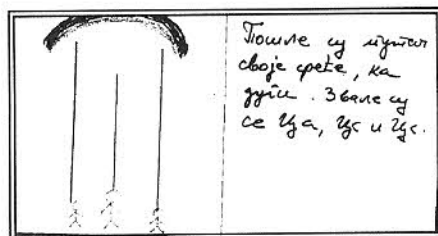 Пошле су путем
своје среће, ка
дуги. Звале су
се Ца, Цс и Цс.